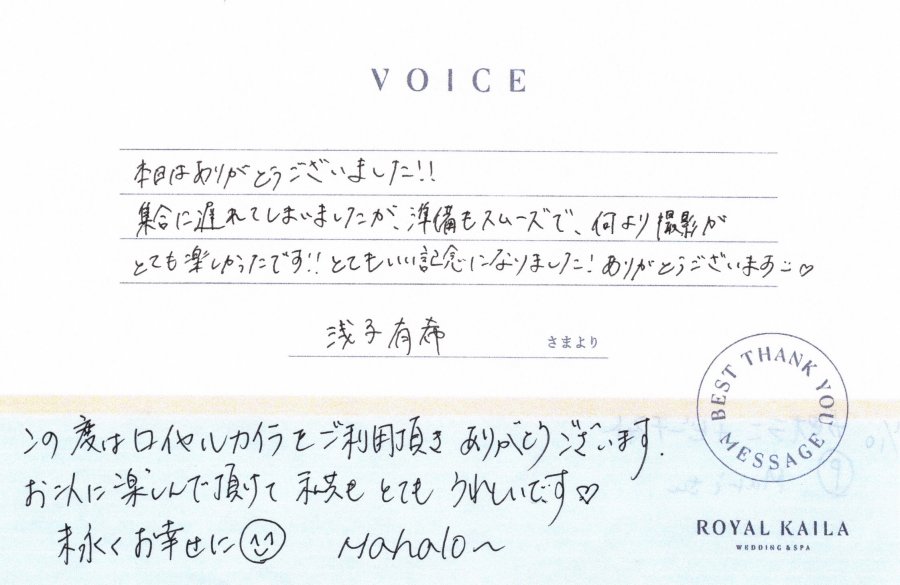 VOICE
本日はありがとうございました!!
集合に遅れてしまいましたが、準備もスムーズで、何より撮影が
とても楽しかったです!! とてもいい記念になりました! ありがとうございます♡
浅子有希 さまより
BEST THANK YOU MESSAGE
この度はロイヤルカイラをご利用頂きありがとうございます.
お二人に楽しんで頂けて 私共も とても うれしいです♡
末永くお幸せに Mahalo〜
ROYAL KAILA
WEDDING & SPA